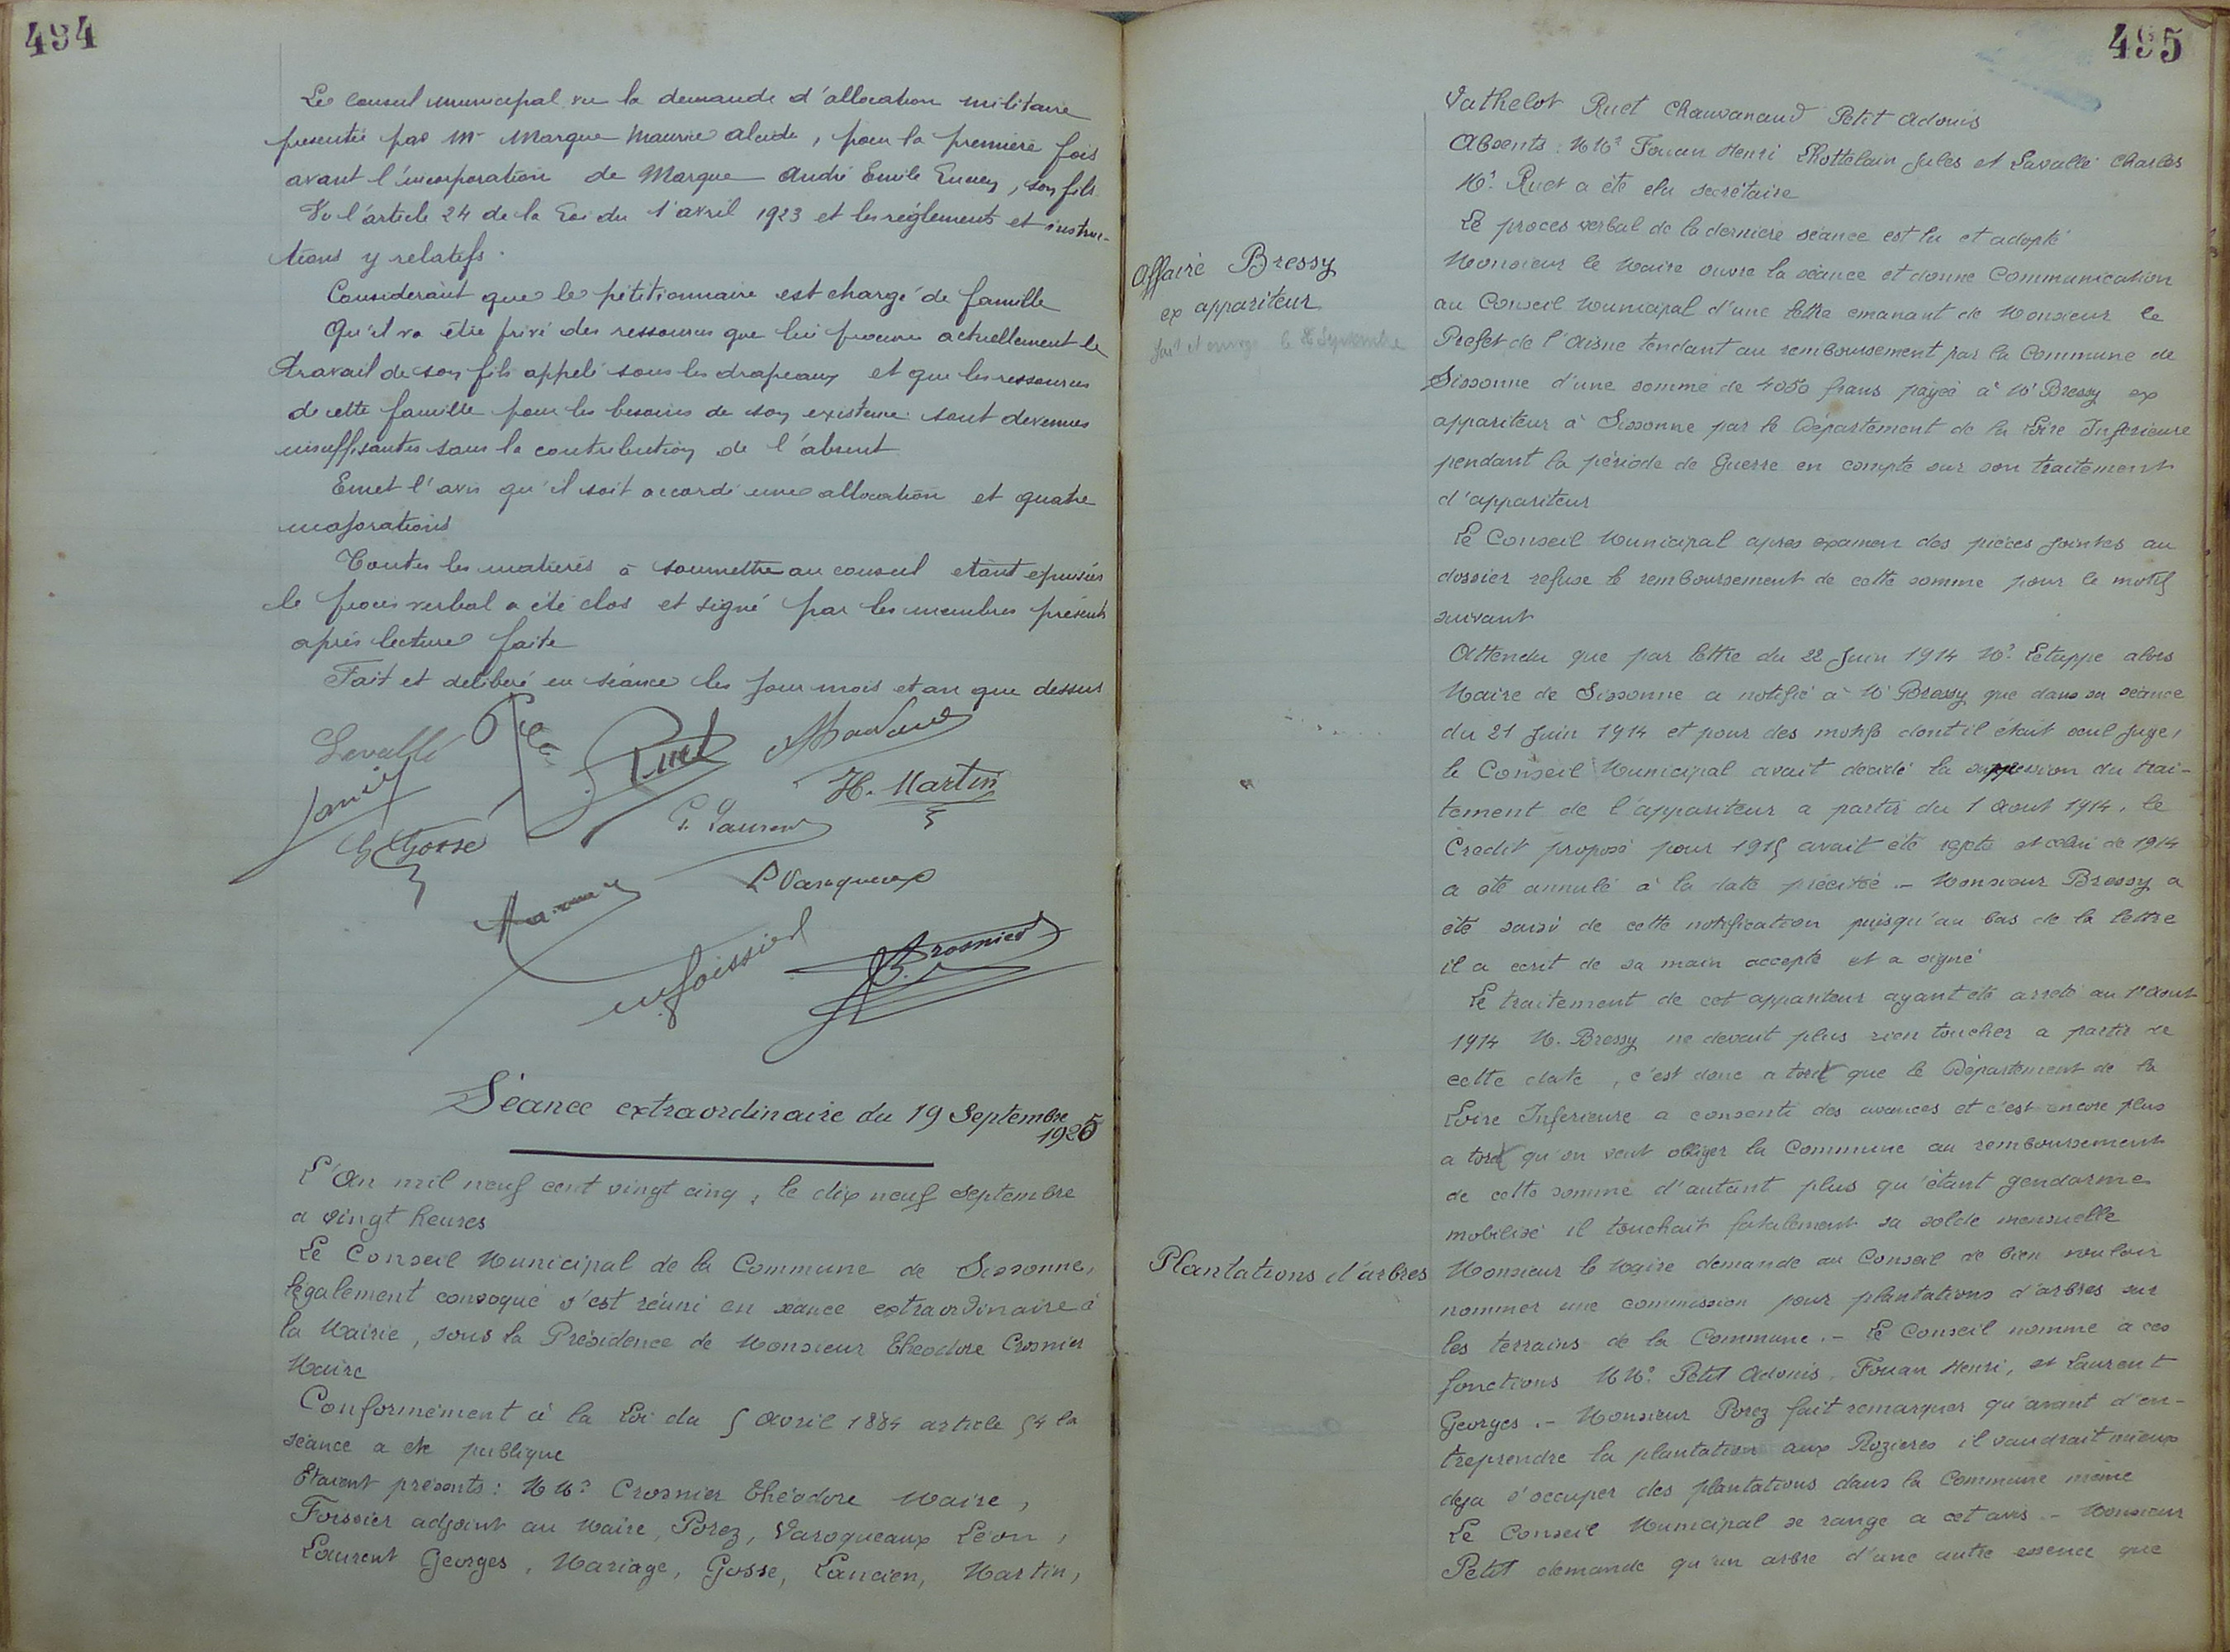 494
Le Conseil municipal vu la demande d'allocation militaire
presentée par Mr Marque Maurice Alcide, pour la première fois
avant l'incorporation de Marque André Emile Lucien, son fils
Vu l'article 24 de la Loi du 1 avril 1923 et les réglements et instruc-
tions y relatifs.
Considerant que le pétitionnaire est chargé de famille
Qu'il va être privé des ressources que lui procure actuellement le
travail de son fils appelé sous les drapeaux et que les ressources
de cette famille pour les besoins de son existence sont devenues
insuffisantes sans la contribution de l'absent
Emet l'avis qu'il soit accordé une allocation et quatre
majorations
Toutes les matières à soumettre au conseil etant epuisées
le procès verbal a été clos et signé par les membres présents
après lecture faite
Fait et deliberé en séance les jour mois et an que dessus
Lavallé
Ruet
H. Martin
G. Laurent
G Gosse
L Varoqueaux
Foissier
Crosnier
Séance extraordinaire du 19 Septembre
1925
L'An mil neuf cent vingt cinq, le dix neuf septembre
a vingt heures
Le Conseil Municipal de la Commune de Sissonne,
légalement convoqué s'est réuni en séance extraordinaire à
la Mairie, sous la Présidence de Monsieur Théodore Crosnier
Maire
Conformément à la Loi du 5 Avril 1884 article 54 la
séance a ete publique
Etaient présents: MMrs Crosnier Théodore Maire,
Foissier adjoint au Maire, Porez, Varoqueaux Léon,
Laurent Georges, Mariage, Gosse, Lancien, Martin,
495
Vathelot Ruet Chauvanaud Petit Adonis
Absents: MMrs Fouan Henri Lhottelain Jules et Lavallé Charles
Mr. Ruet a été elu secrétaire
Le proces verbal de la derniere séance est lu et adopté
Affaire Bressy
ex appariteur
fait et envoyé le 28 Septembre
Monsieur le Maire ouvre la séance et donne Communication
au Conseil Municipal d'une lettre emanant de Monsieur le
Prefet de l'Aisne tendant au remboursement par la Commune de
Sissonne d'une somme de 4050 francs payée à Mr Bressy ex
appariteur à Sissonne par le Département de la Loire Inferieure
pendant la période de Guerre en compte sur son traitement
d'appariteur
Le Conseil Municipal apres examen des pièces jointes au
dossier refuse le remboursement de cette somme pour le motif
suivant
Attendu que par lettre du 22 Juin 1914 Mr. Letuppe alors
Maire de Sissonne a notifié à Mr Bressy que dans sa séance
du 21 Juin 1914 et pour des motifs dont il était seul juge,
le Conseil Municipal avait decidé la suppression du trai-
tement de l'appariteur a partir du 1 Aout 1914, le
Crédit proposé pour 1915 avait été rejeté et celui de 1914
a été annulé à la date précitée. - Monsieur Bressy a
été saisi de cette notification puisqu'au bas de la lettre
il a ecrit de sa main accepté et a signé
Le traitement de cet appariteur ayant été arreté au 1er Aout
1914 M. Bressy ne devait plus rien toucher a partir de
cette date, c'est donc a tort que le Département de la
Loire Inferieure a consenti des avances et c'est encore plus
a tort qu'on veut obliger la Commune au remboursement
de cette somme d'autant plus qu'étant gendarme
mobilisé il touchait fatalement sa solde mensuelle
Plantations d'arbres
Monsieur le Maire demande au Conseil de bien vouloir
nommer une commission pour plantations d'arbres sur
les terrains de la Commune. - Le Conseil nomme a ces
fonctions MMrs. Petit Adonis, Fouan Henri, et Laurent
Georges. - Monsieur Porez fait remarquer qu'avant d'en-
treprendre la plantation aux Rozieres il vaudrait mieux
deja s'occuper des plantations dans la Commune même
Le Conseil Municipal se range a cet avis. - Monsieur
Petit demande qu'un arbre d'une autre essence que